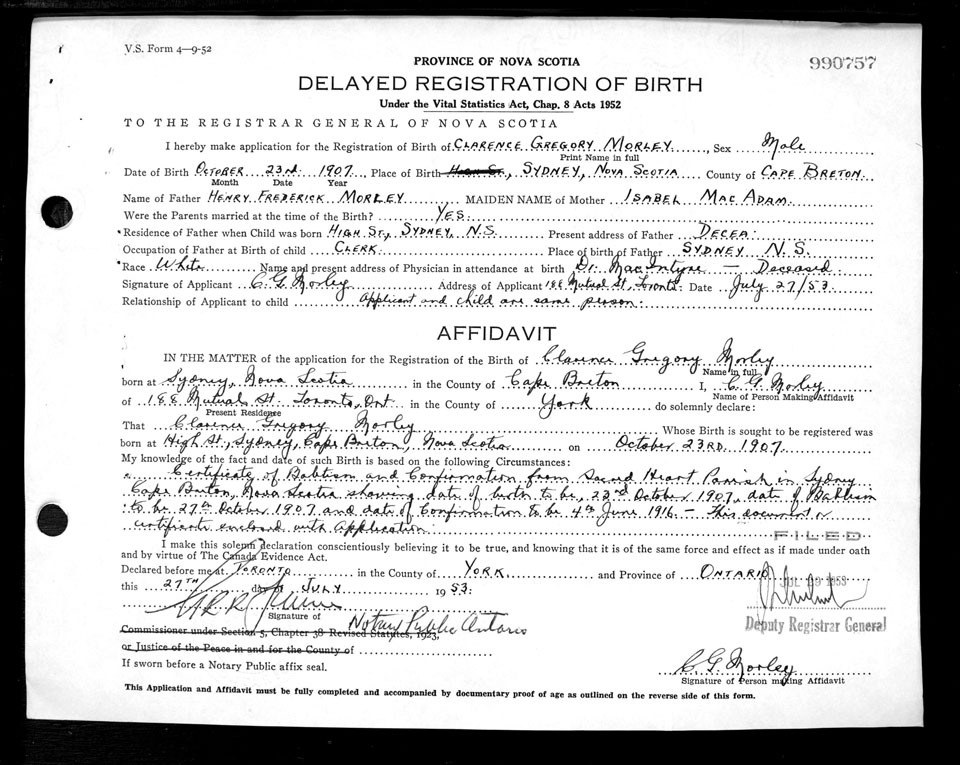 V.S. Form 4—9-52
990757
PROVINCE OF NOVA SCOTIA
DELAYED REGISTRATION OF BIRTH
Under the Vital Statistics Act, Chap. 8 Acts 1952
TO THE REGISTRAR GENERAL OF NOVA SCOTIA
I hereby make application for the Registration of Birth of CLARENCE GREGORY MORLEY, Sex Male
Print Name in full
Date of Birth OCTOBER 23rd 1907, Place of Birth High St., SYDNEY, NOVA SCOTIA County of CAPE BRETON
Month Date Year
Name of Father HENRY FREDERICK MORLEY MAIDEN NAME of Mother ISABEL MAC ADAM
Were the Parents married at the time of the Birth? YES.
Residence of Father when Child was born HIGH ST., SYDNEY, N.S. Present address of Father DECEA:
Occupation of Father at Birth of child CLERK. Place of birth of Father SYDNEY N.S.
Race White Name and present address of Physician in attendance at birth Dr. MacIntyre — Deceased.
Signature of Applicant C. G. Morley Address of Applicant 188 Mutual St., Toronto. Date July 27/53.
Relationship of Applicant to child Applicant and child are same person.
AFFIDAVIT
IN THE MATTER of the application for the Registration of the Birth of Clarence Gregory Morley
Name in full
born at Sydney, Nova Scotia in the County of Cape Breton I, C G Morley
Name of Person Making Affidavit
of 188 Mutual St. Toronto, Ont in the County of York do solemnly declare:
Present Residence
That Clarence Gregory Morley Whose Birth is sought to be registered was
born at High St, Sydney, Cape Breton, Nova Scotia on October 23RD, 1907.
My knowledge of the fact and date of such Birth is based on the following Circumstances:
Certificate of Babtism and Confirmation from Sacred Heart Parish in Sydney
Cape Breton, Nova Scotia showing date of birth to be, 23rd October 1907, date of Babtism
to be 27th October 1907 and date of Confirmation to be 4th June 1916. — This document or
certificate enclosed with Application.
FILED
I make this solemn declaration conscientiously believing it to be true, and knowing that it is of the same force and effect as if made under oath
and by virtue of The Canada Evidence Act.
Declared before me at TORONTO in the County of YORK and Province of ONTARIO
this 27TH day of JULY 1953.
1953
Signature of
Notary Public Ontario
Deputy Registrar General
Commissioner under Section 5, Chapter 38 Revised Statutes, 1923,
or Justice of the Peace in and for the County of
If sworn before a Notary Public affix seal.
C. G. Morley
Signature of Person making Affidavit
This Application and Affidavit must be fully completed and accompanied by documentary proof of age as outlined on the reverse side of this form.